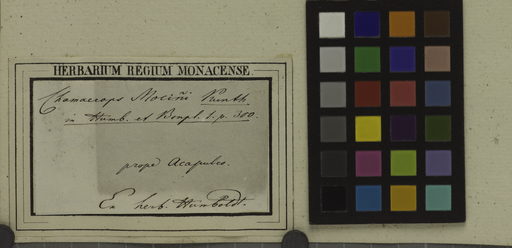 HERBARIUM REGIUM MONACENSE.
Chamaerops Mociñi Kunth.
in Humb. et Bonpl. 1. p. 300.
prope Acapulco.
Ex herb. Humboldt.